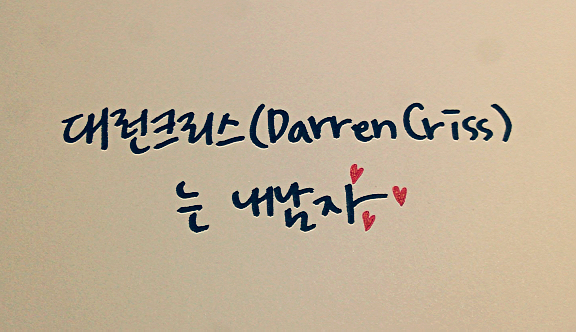 대런크리스(Darren Criss)
는 내남자